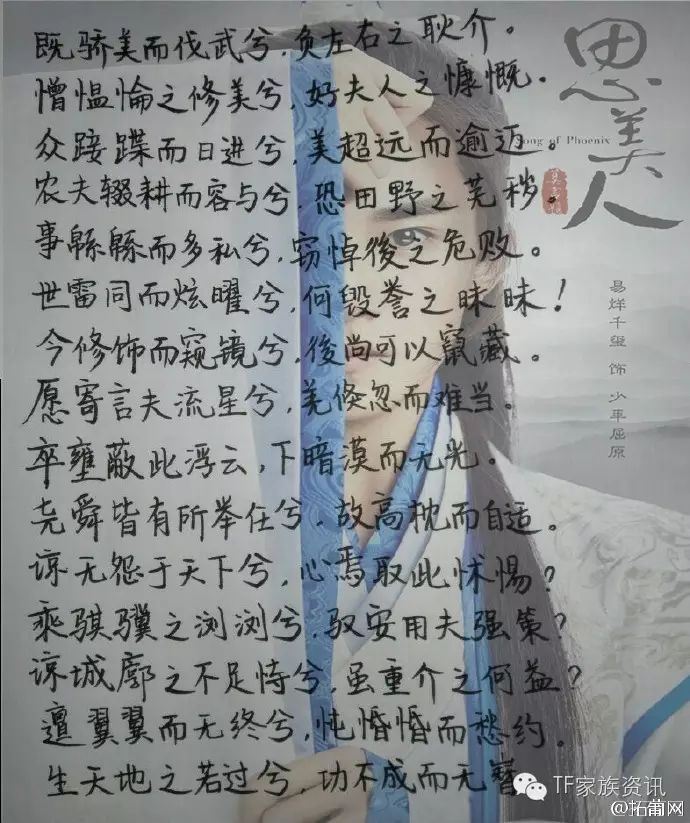 既骄美而伐武兮，负左右之耿介。
憎愠惀之修美兮，好夫人之慷慨。
众踥蹀而日进兮，美超远而逾迈。
农夫辍耕而容与兮，恐田野之芜秽。
事緜緜而多私兮，窃悼後之危败。
世雷同而炫曜兮，何毁誉之昧昧！
今修饰而窥镜兮，後尚可以竄藏。
愿寄言夫流星兮，羌倏忽而难当。
卒壅蔽此浮云，下暗漠而无光。
尧舜皆有所举任兮，故高枕而自适。
谅无怨于天下兮，心焉取此怵惕？
乘骐骥之浏浏兮，驭安用夫强策？
谅城廓之不足恃兮，虽重介之何益？
邅翼翼而无终兮，忳惛惛而愁约。
生天地之若过兮，功不成而无
思美人
Song of Phoenix
易烊千玺 饰 少年屈原
TF家族资讯
@拓莆网